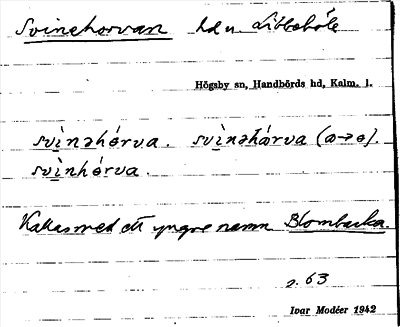 Svinehorvan hd u. Libbeböle
Högsby sn, Handbörds hd, Kalm. l.
svìnəhórva. svìnəhórva (a→ɵ).
svìnhórva.
Kallas med ett yngre namn Blombacka.
2. 63
Ivar Modéer 1942